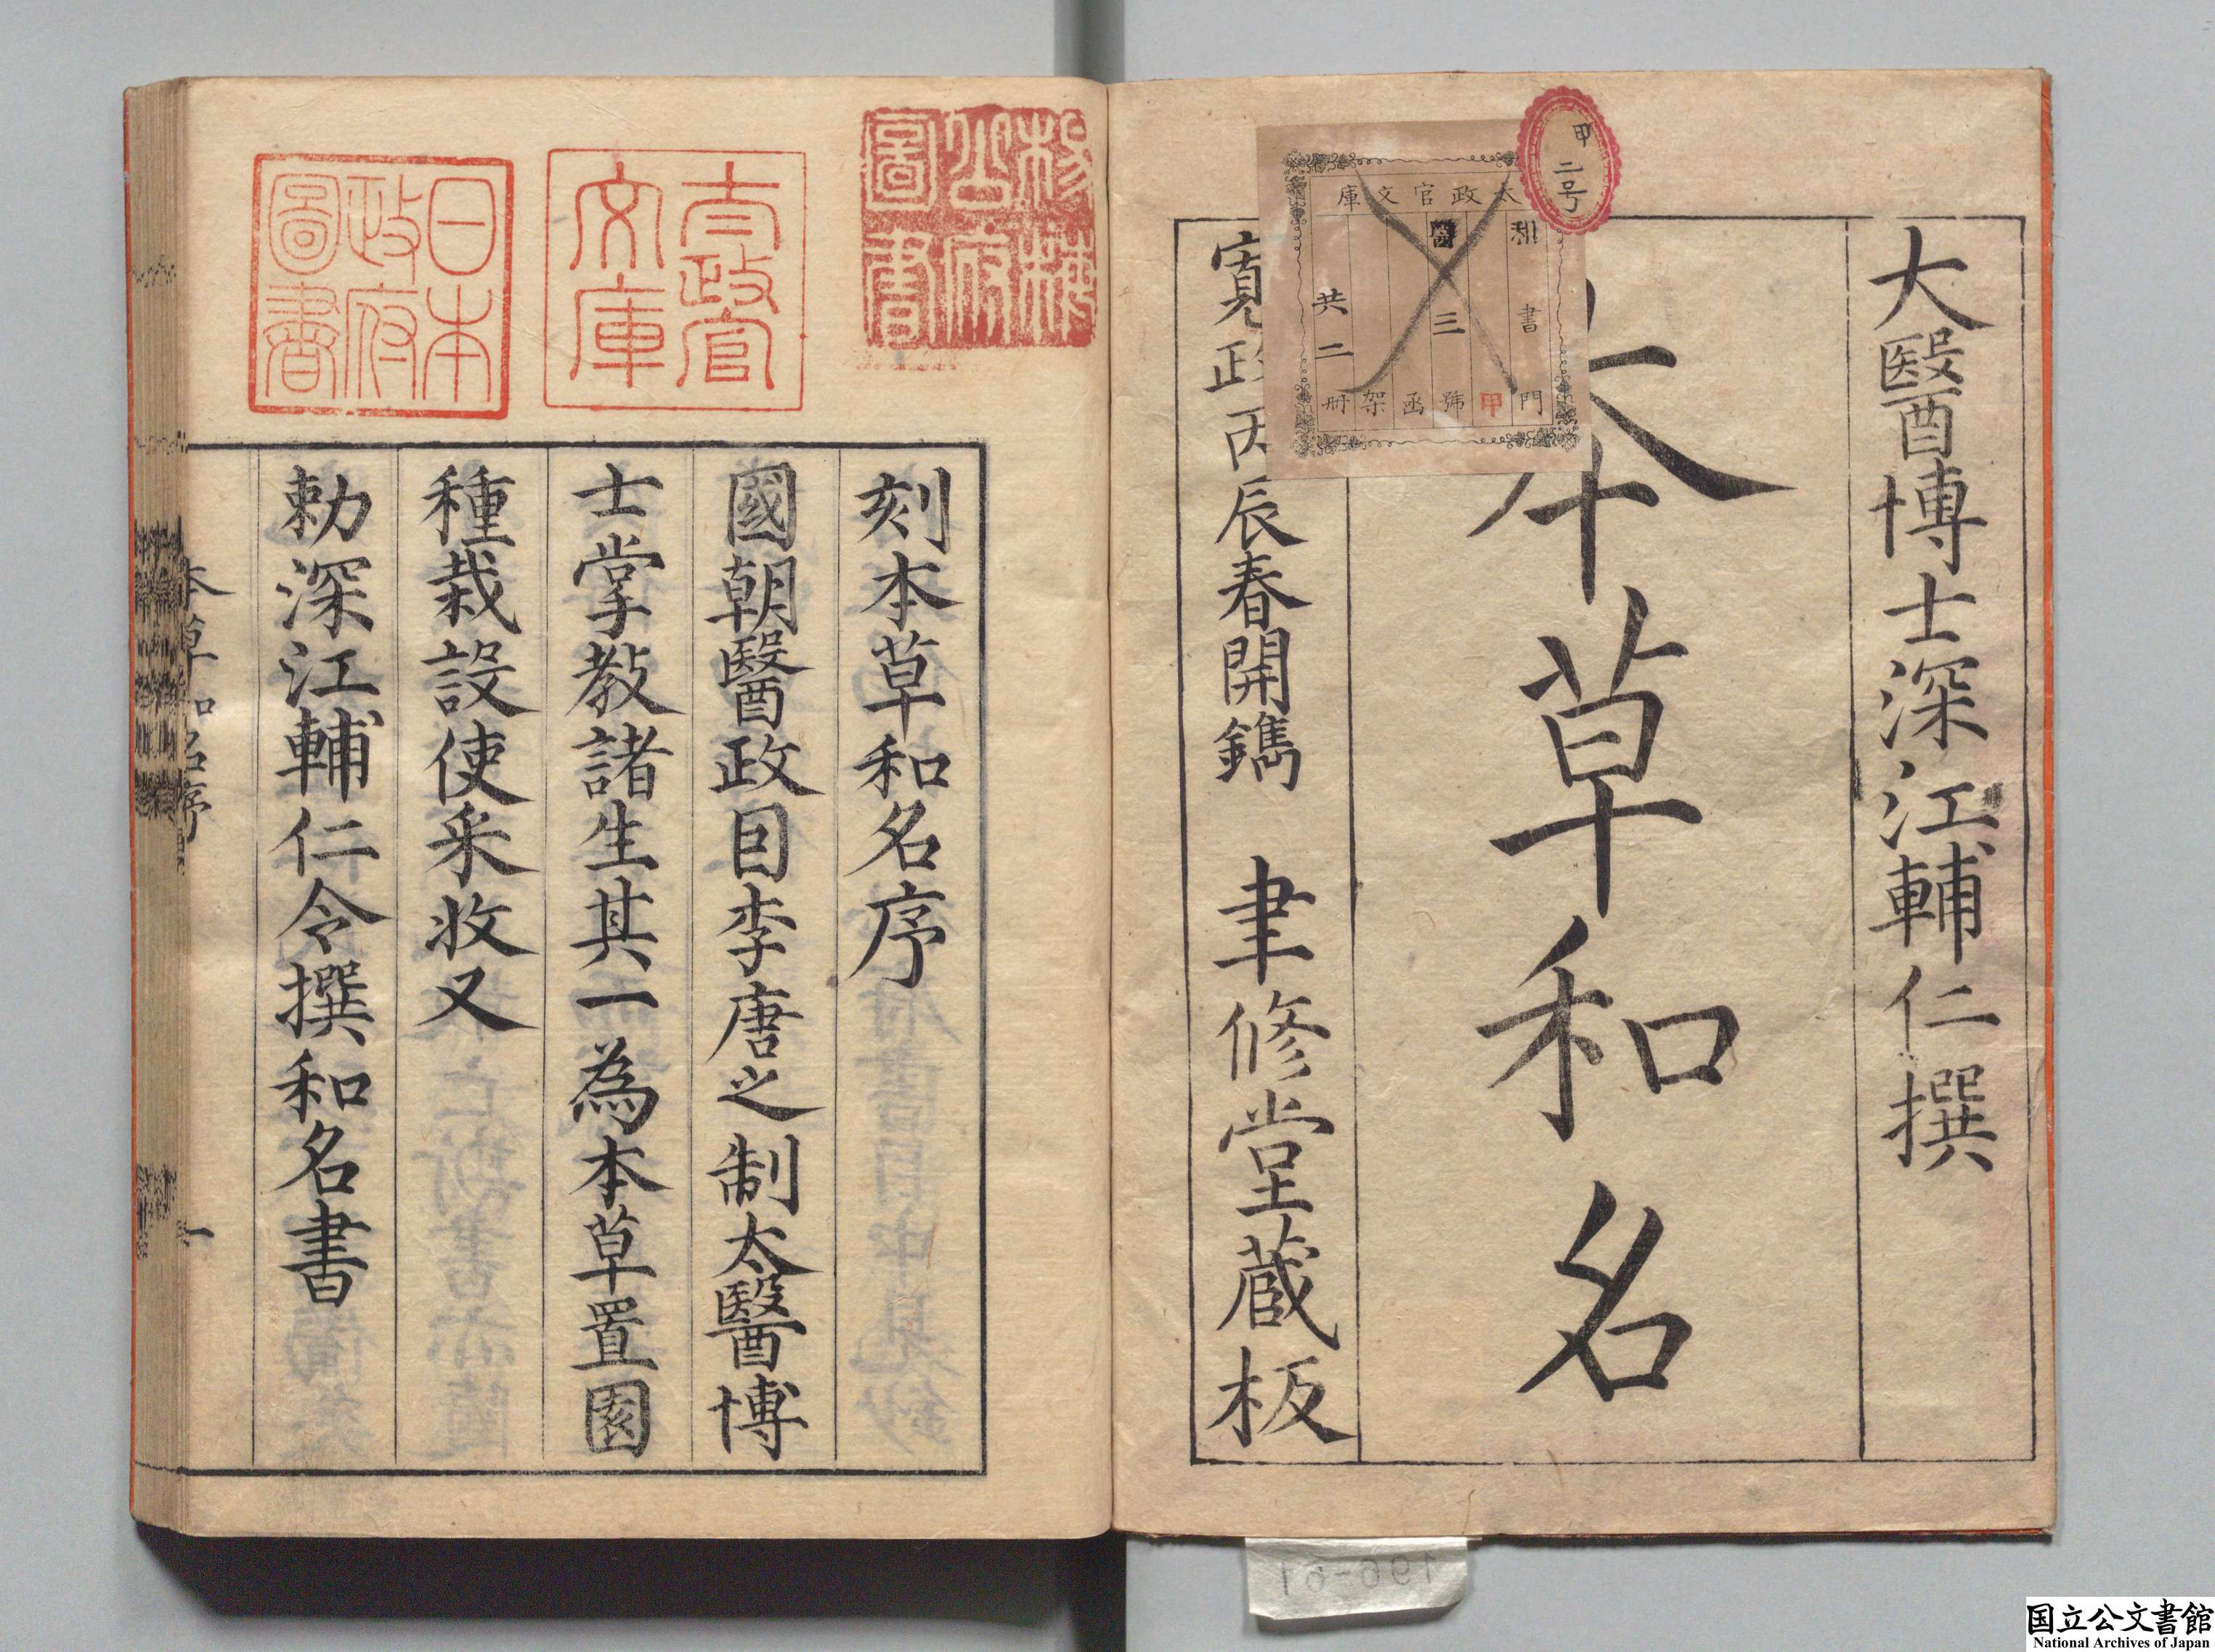 大醫博士深江輔仁撰
本草和名
寬政丙辰春開鐫　聿修堂蔵板
甲
二号
太政官文庫
和書門
甲
醫
三號
函
架
共二冊
刻本草和名序
國朝醫政因李唐之制太醫博
士掌教諸生其一為本草置園
種栽設使采收又
勅深江輔仁令撰和名書
太政官
文庫
日本
政府
圖書
本草和名序
一
196-61
国立公文書館
National Archives of Japan